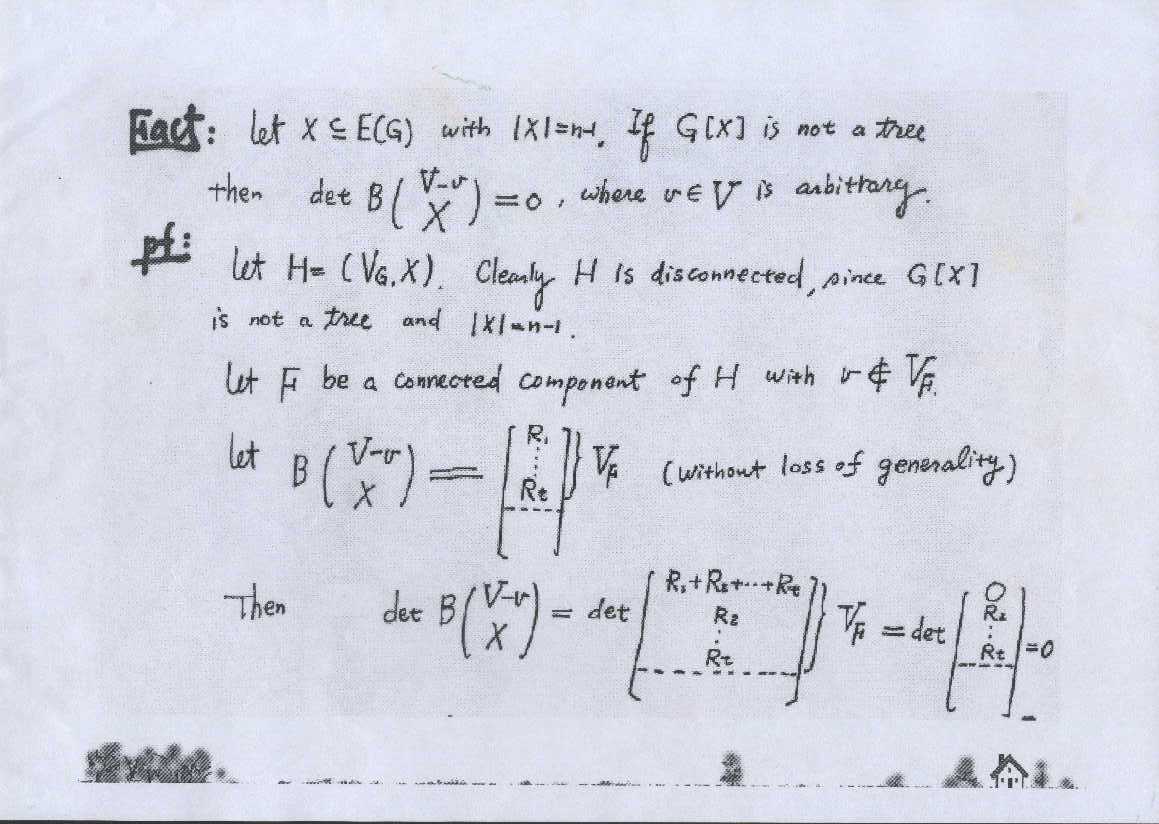 Fact: let X ⊆ E(G) with |X|=n-1. If G[X] is not a tree
then det B(V-v X) = 0, where v ∈ V is arbittary.
pf:
let H = (V_G, X). Clearly H is disconnected, since G[X]
is not a tree and |X|=n-1.
let F be a connected component of H with v ∉ V_F.
let B(V-v X) = [R₁ ⋮ R_t] } V_F (without loss of generality)
Then det B(V-v X) = det [R₁+R₂+⋯+R_t R₂ ⋮ R_t] } V_F = det [0 R₂ ⋮ R_t] = 0